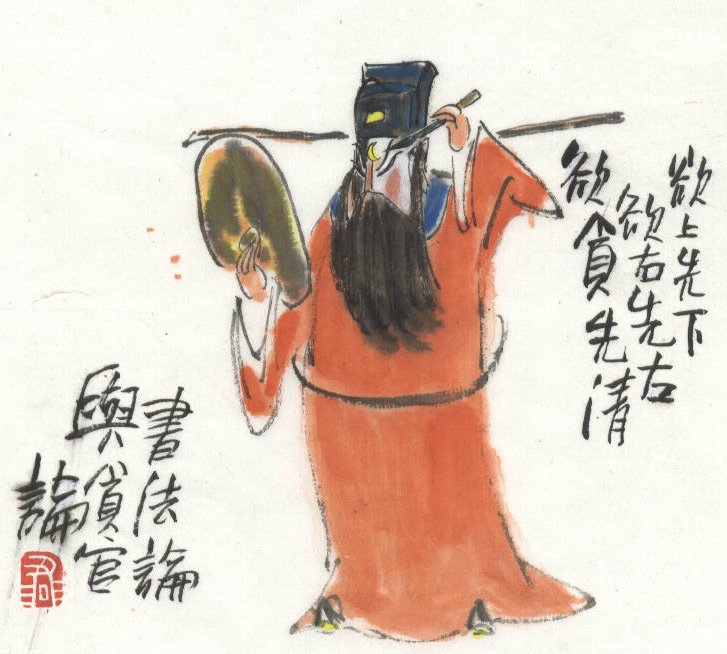 欲上先下
欲右先右
欲貪先清
書法論
與貪官
論